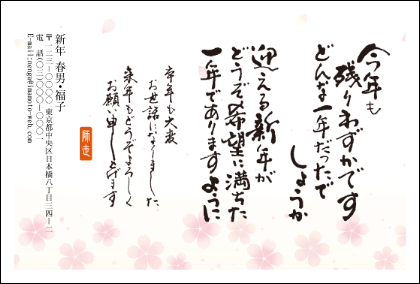 今年も
残りわずかです
どんな一年だったで
しょうか
迎える新年が
どうぞ希望に満ちた
一年でありますように
本年も大変
お世話になりました
来年もどうぞよろしく
お願い申し上げます
師走
新年 春男・福子
〒一二三-〇〇〇〇 東京都中央区日本橋八丁目三四-二
電 話(〇三)〇〇〇〇-〇〇〇一